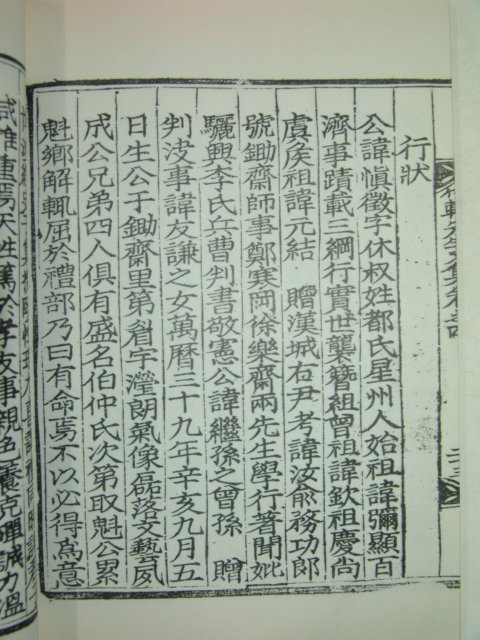 行狀
公諱愼徵字休叔姓都氏星州人始祖諱彌顯百
濟事蹟載三綱行實世襲簪組曾祖諱欽祖慶尚
虞矦祖諱元結 贈漢城右尹考諱汝兪務功郎
號鋤齋師事鄭寒岡徐樂齋兩先生學行著聞妣
驪興李氏兵曹判書敬憲公諱繼孫之曾孫 贈
判决事諱友謙之女萬曆三十九年辛亥九月五
日生公于鋤齋里第眉宇瀅朗氣像磊落文藝夙
成公兄弟四人俱有盛名伯仲氏次第取魁公累
魁鄉解輒屈於禮部乃曰有命焉不以必得爲意
咸推重焉天性篤於孝友事親色養克殫誠力溫